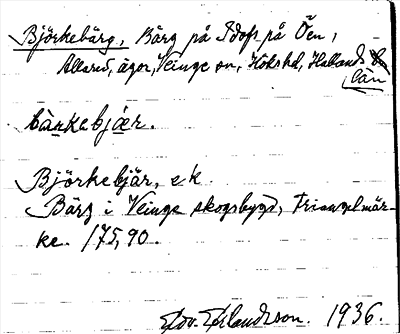 Björkebärg, Bärg på Idoft på Öen,
Allared, ägor, Veinge sn, Hökshd, Hallands
län
bàrkebjær.
Björkebjär, ek.
Bärg i Veinge skogsbygd, triangelmär-
ke. 175,90.
Edv. Erlandsson. 1936.